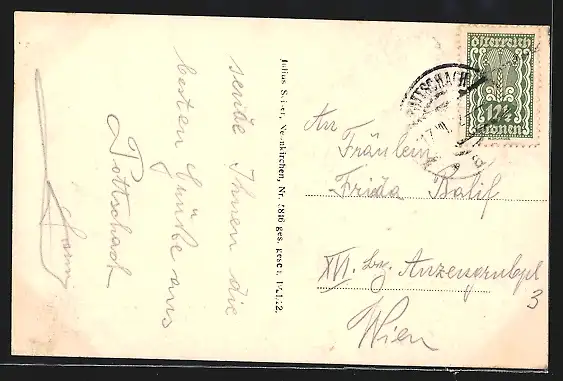 sende Ihnen die
besten Grüße aus
Pottschach
Julius Seiser, Neunkirchen, Nr. 5816 ges. gesch.
österreich
12½
Kronen
POTTSCHACH
An
Fräulein
Frida Balif
XVI. bz. Anzengrubpl
3
Wien